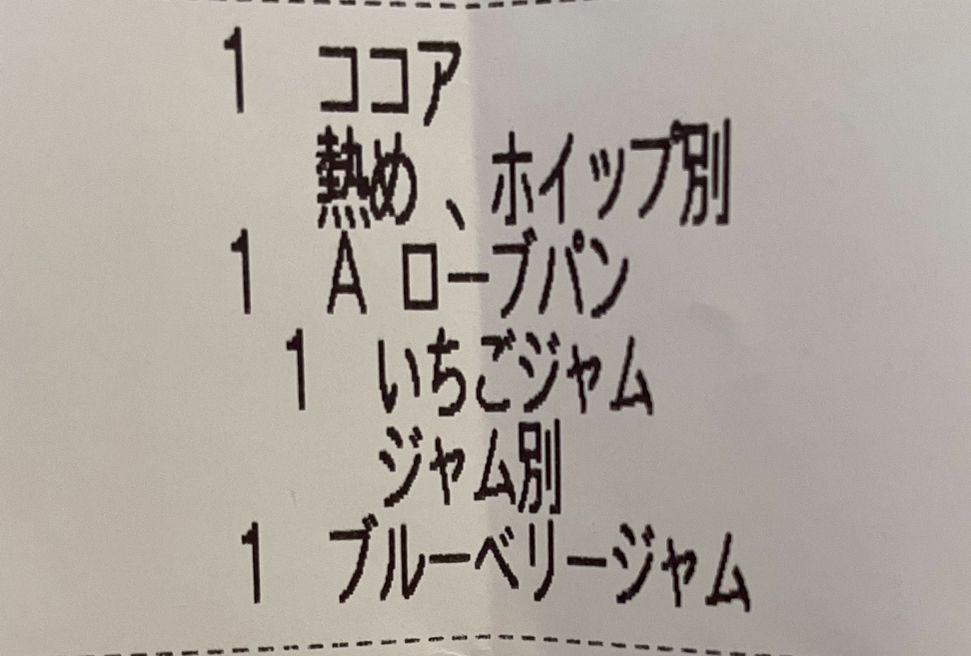 1 ココア
熱め、ホイップ別
1 A ローブパン
1 いちごジャム
ジャム別
1 ブルーベリージャム